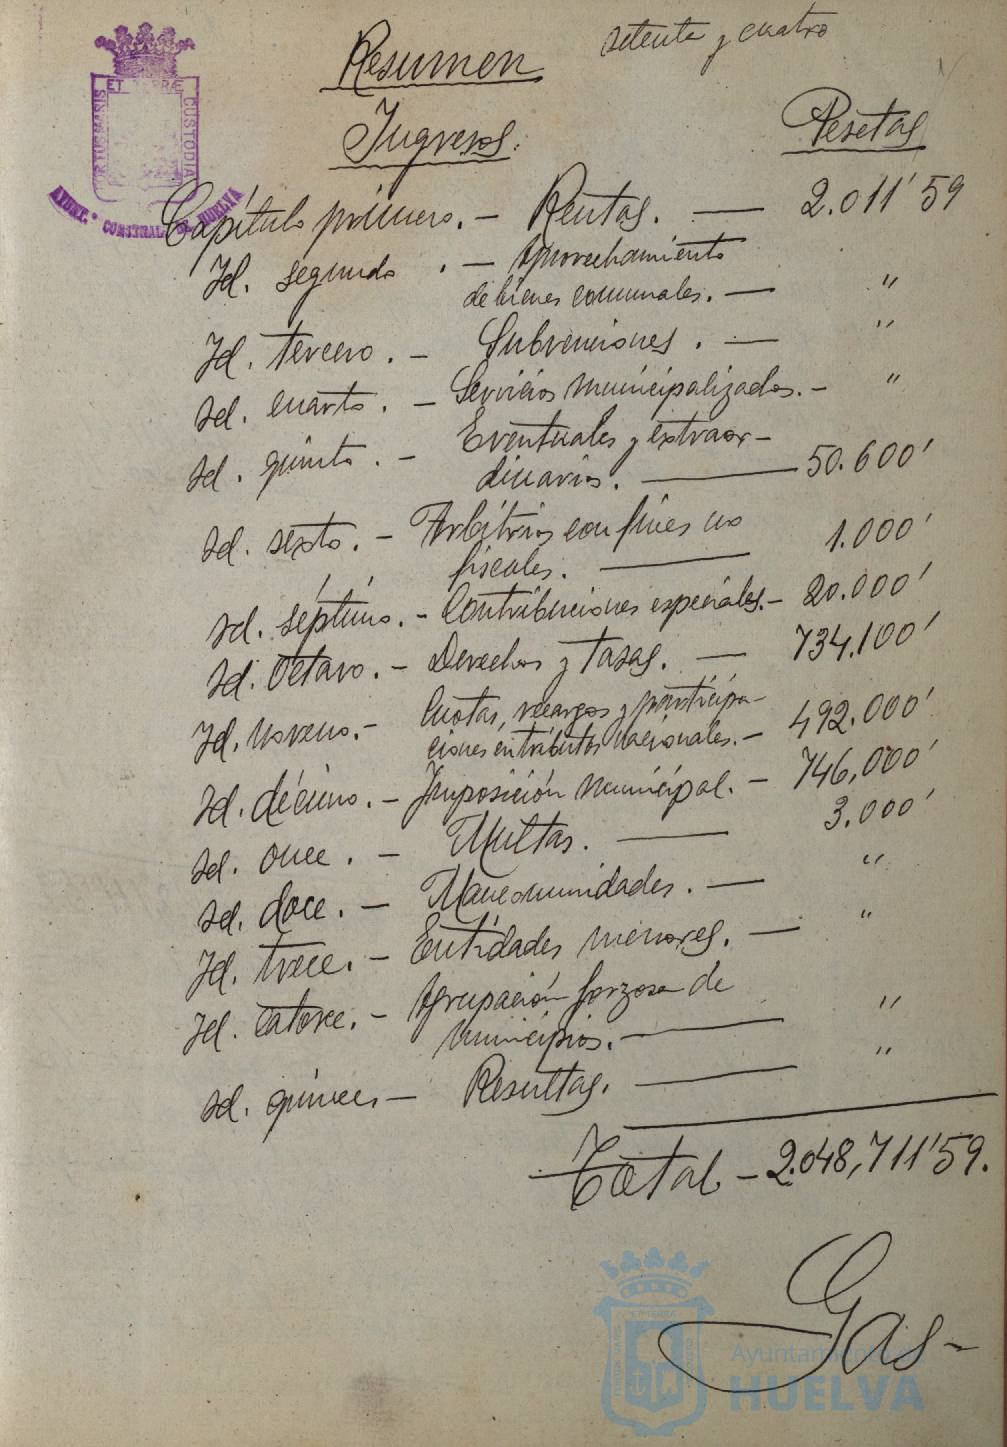 setenta y cuatro
Resumen
Ingresos.
Pesetas
ET TERRÆ
CUSTODIA
AYUNT.º CONSTNAL. DE HUELVA
Capítulo primero. - Rentas. — 2.011'59
Id. segundo. - Aprovechamiento
de bienes comunales. — "
Id. tercero. - Subvenciones. — "
Id. cuarto. - Servicios municipalizados. - "
Id. quinto. - Eventuales y extraor-
dinarios. — 50.600'
Id. sexto. - Arbitrios con fines no
fiscales. — 1.000'
Id. séptimo. - Contribuciones especiales. - 20.000'
Id. Octavo. - Derechos y tasas. — 734.100'
Id. noveno. - Cuotas, recargos y participa-
ciones en tributos nacionales. - 492.000'
Id. décimo. - Imposición municipal. - 746,000'
Id. once. - Multas. — 3.000'
Id. doce. - Mancomunidades. — "
Id. trece. - Entidades menores. — "
Id. Catorce. - Agrupación forzosa de
municipios. — "
Id. quince. - Resultas. — "
Total - 2.048,711'59.
Gas-
Ayuntamiento de
HUELVA